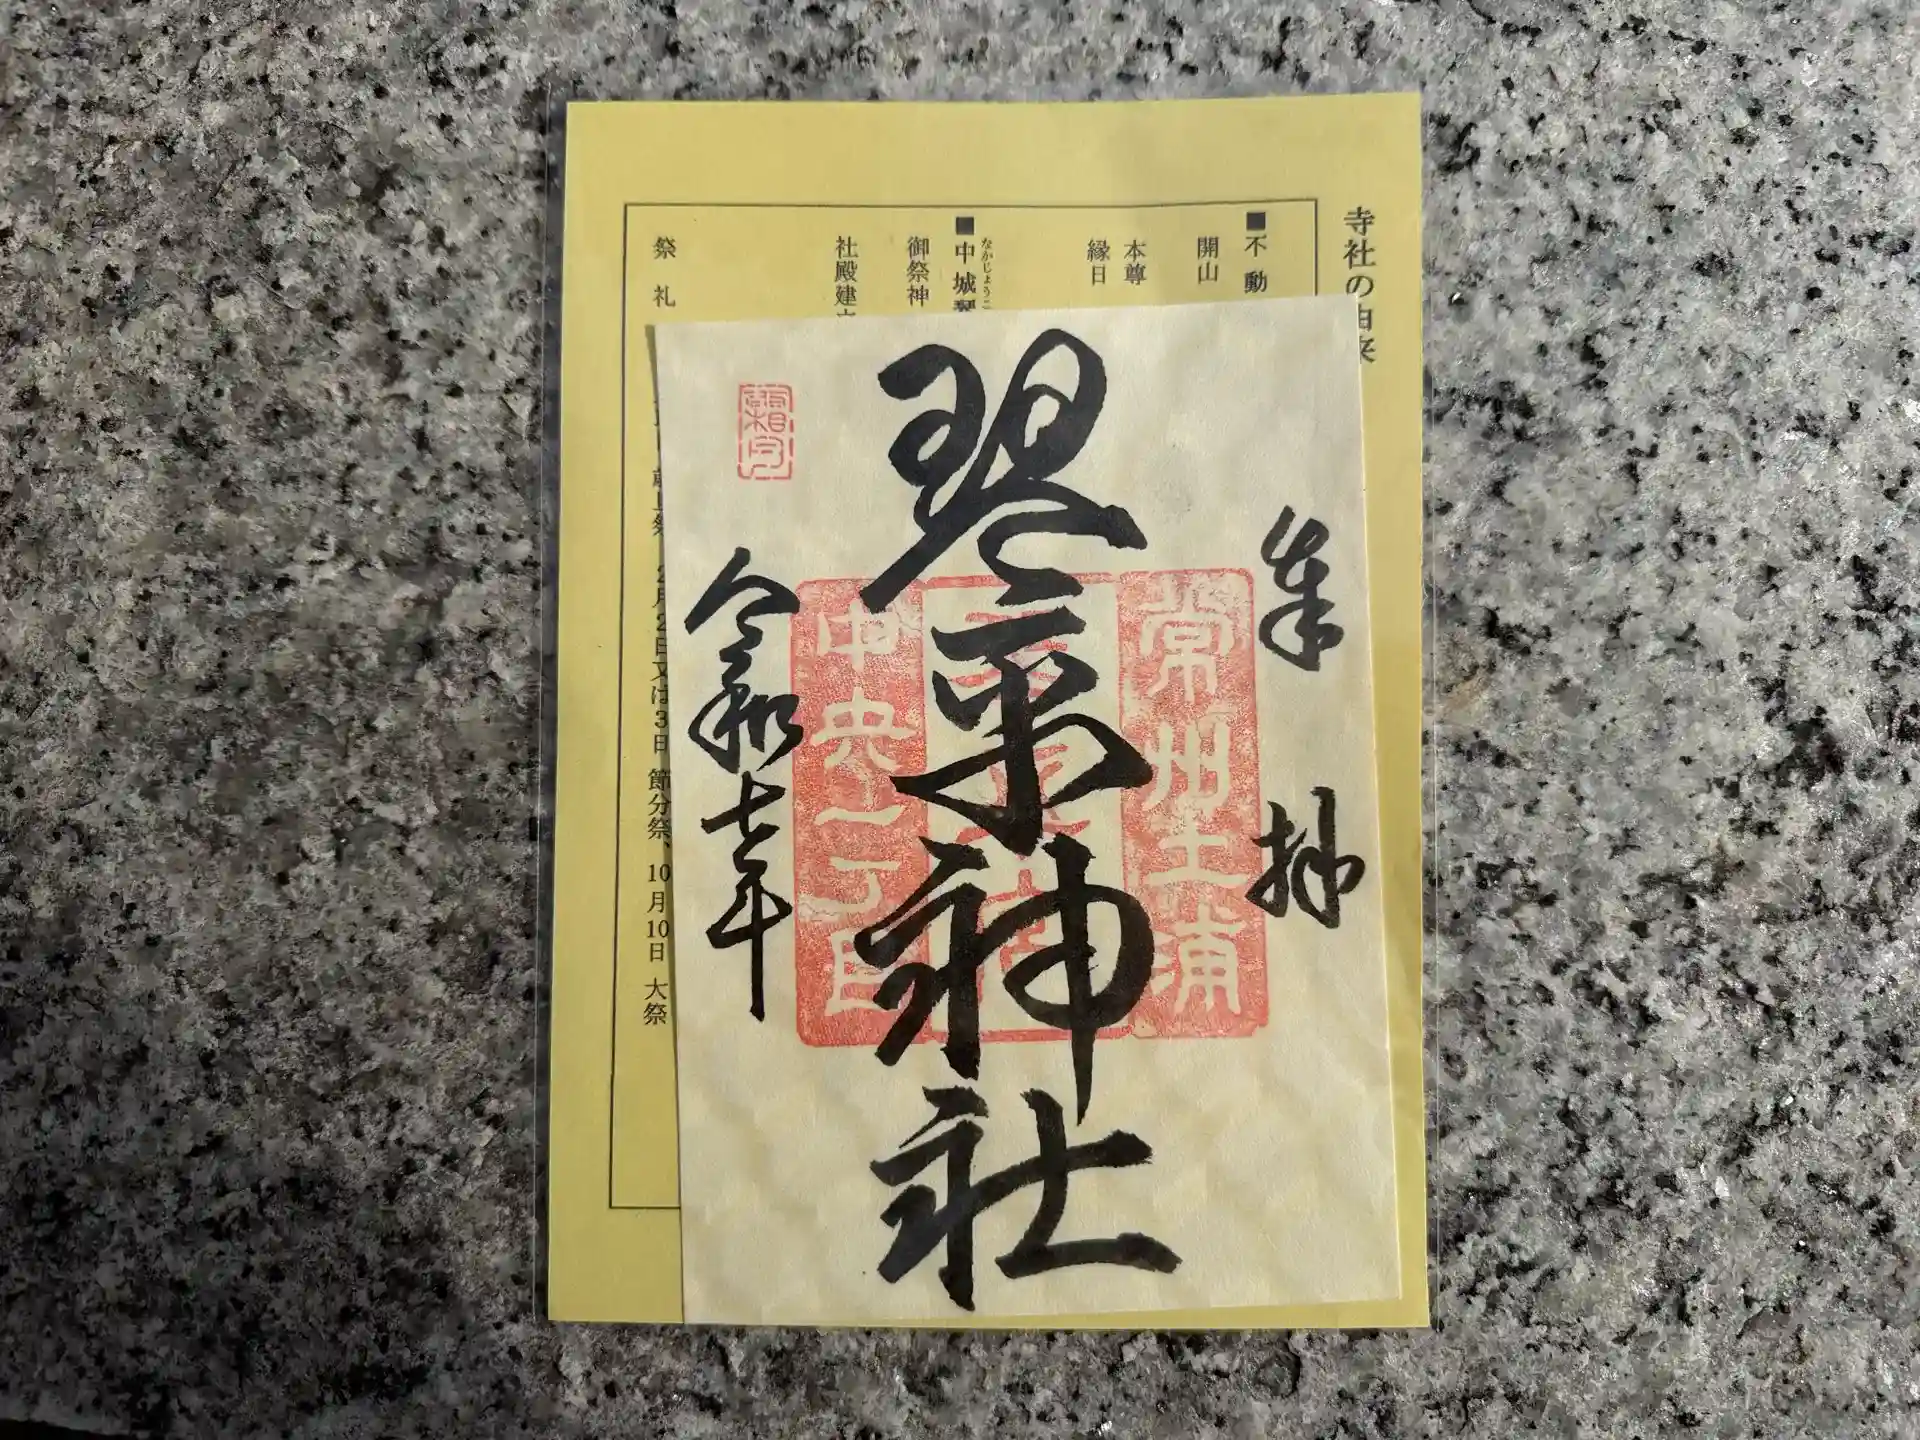 寺社の由来
■不動
開山
本尊
縁日
■中城琴
なかじょうこ
御祭神
社殿建立
祭礼
2月2日又は3日 節分祭、10月10日 大祭
奉拝
常州土浦
琴平神社
中央一丁目
令和七年